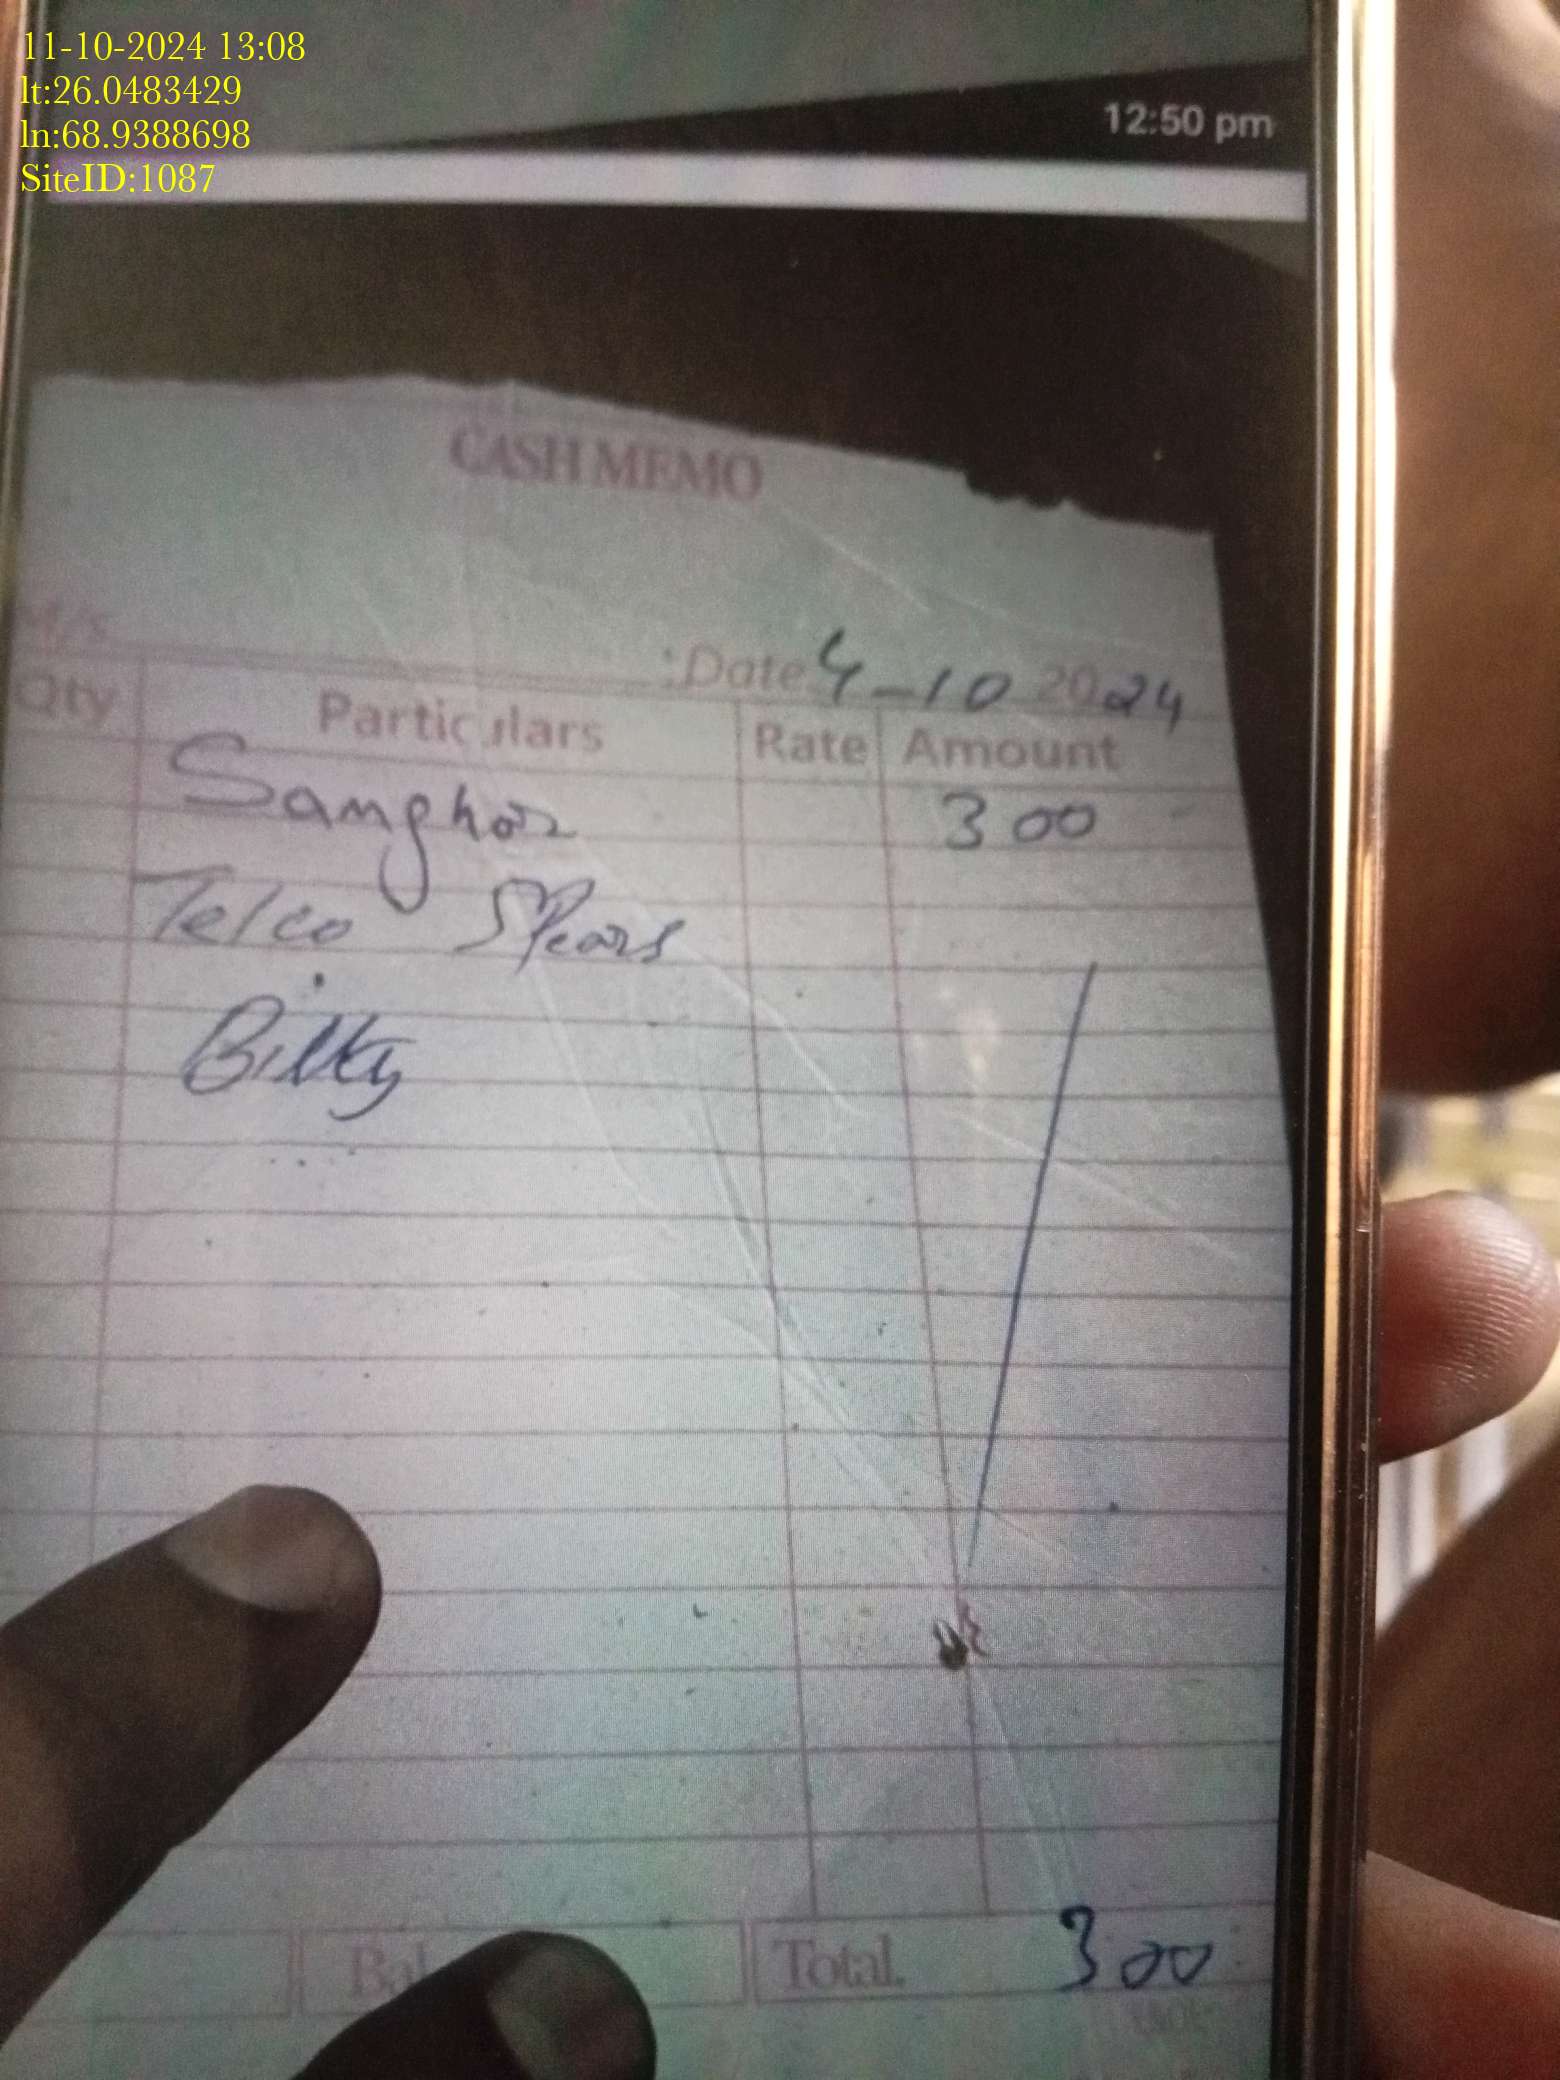 11-10-2024 13:08
lt:26.0483429
ln:68.9388698
SiteID:1087
12:50 pm
CASH MEMO
M/s
Date 4-10 2024
Qty Particulars Rate Amount
Sanghar 300
Telco Spears
Bilty
Total. 300